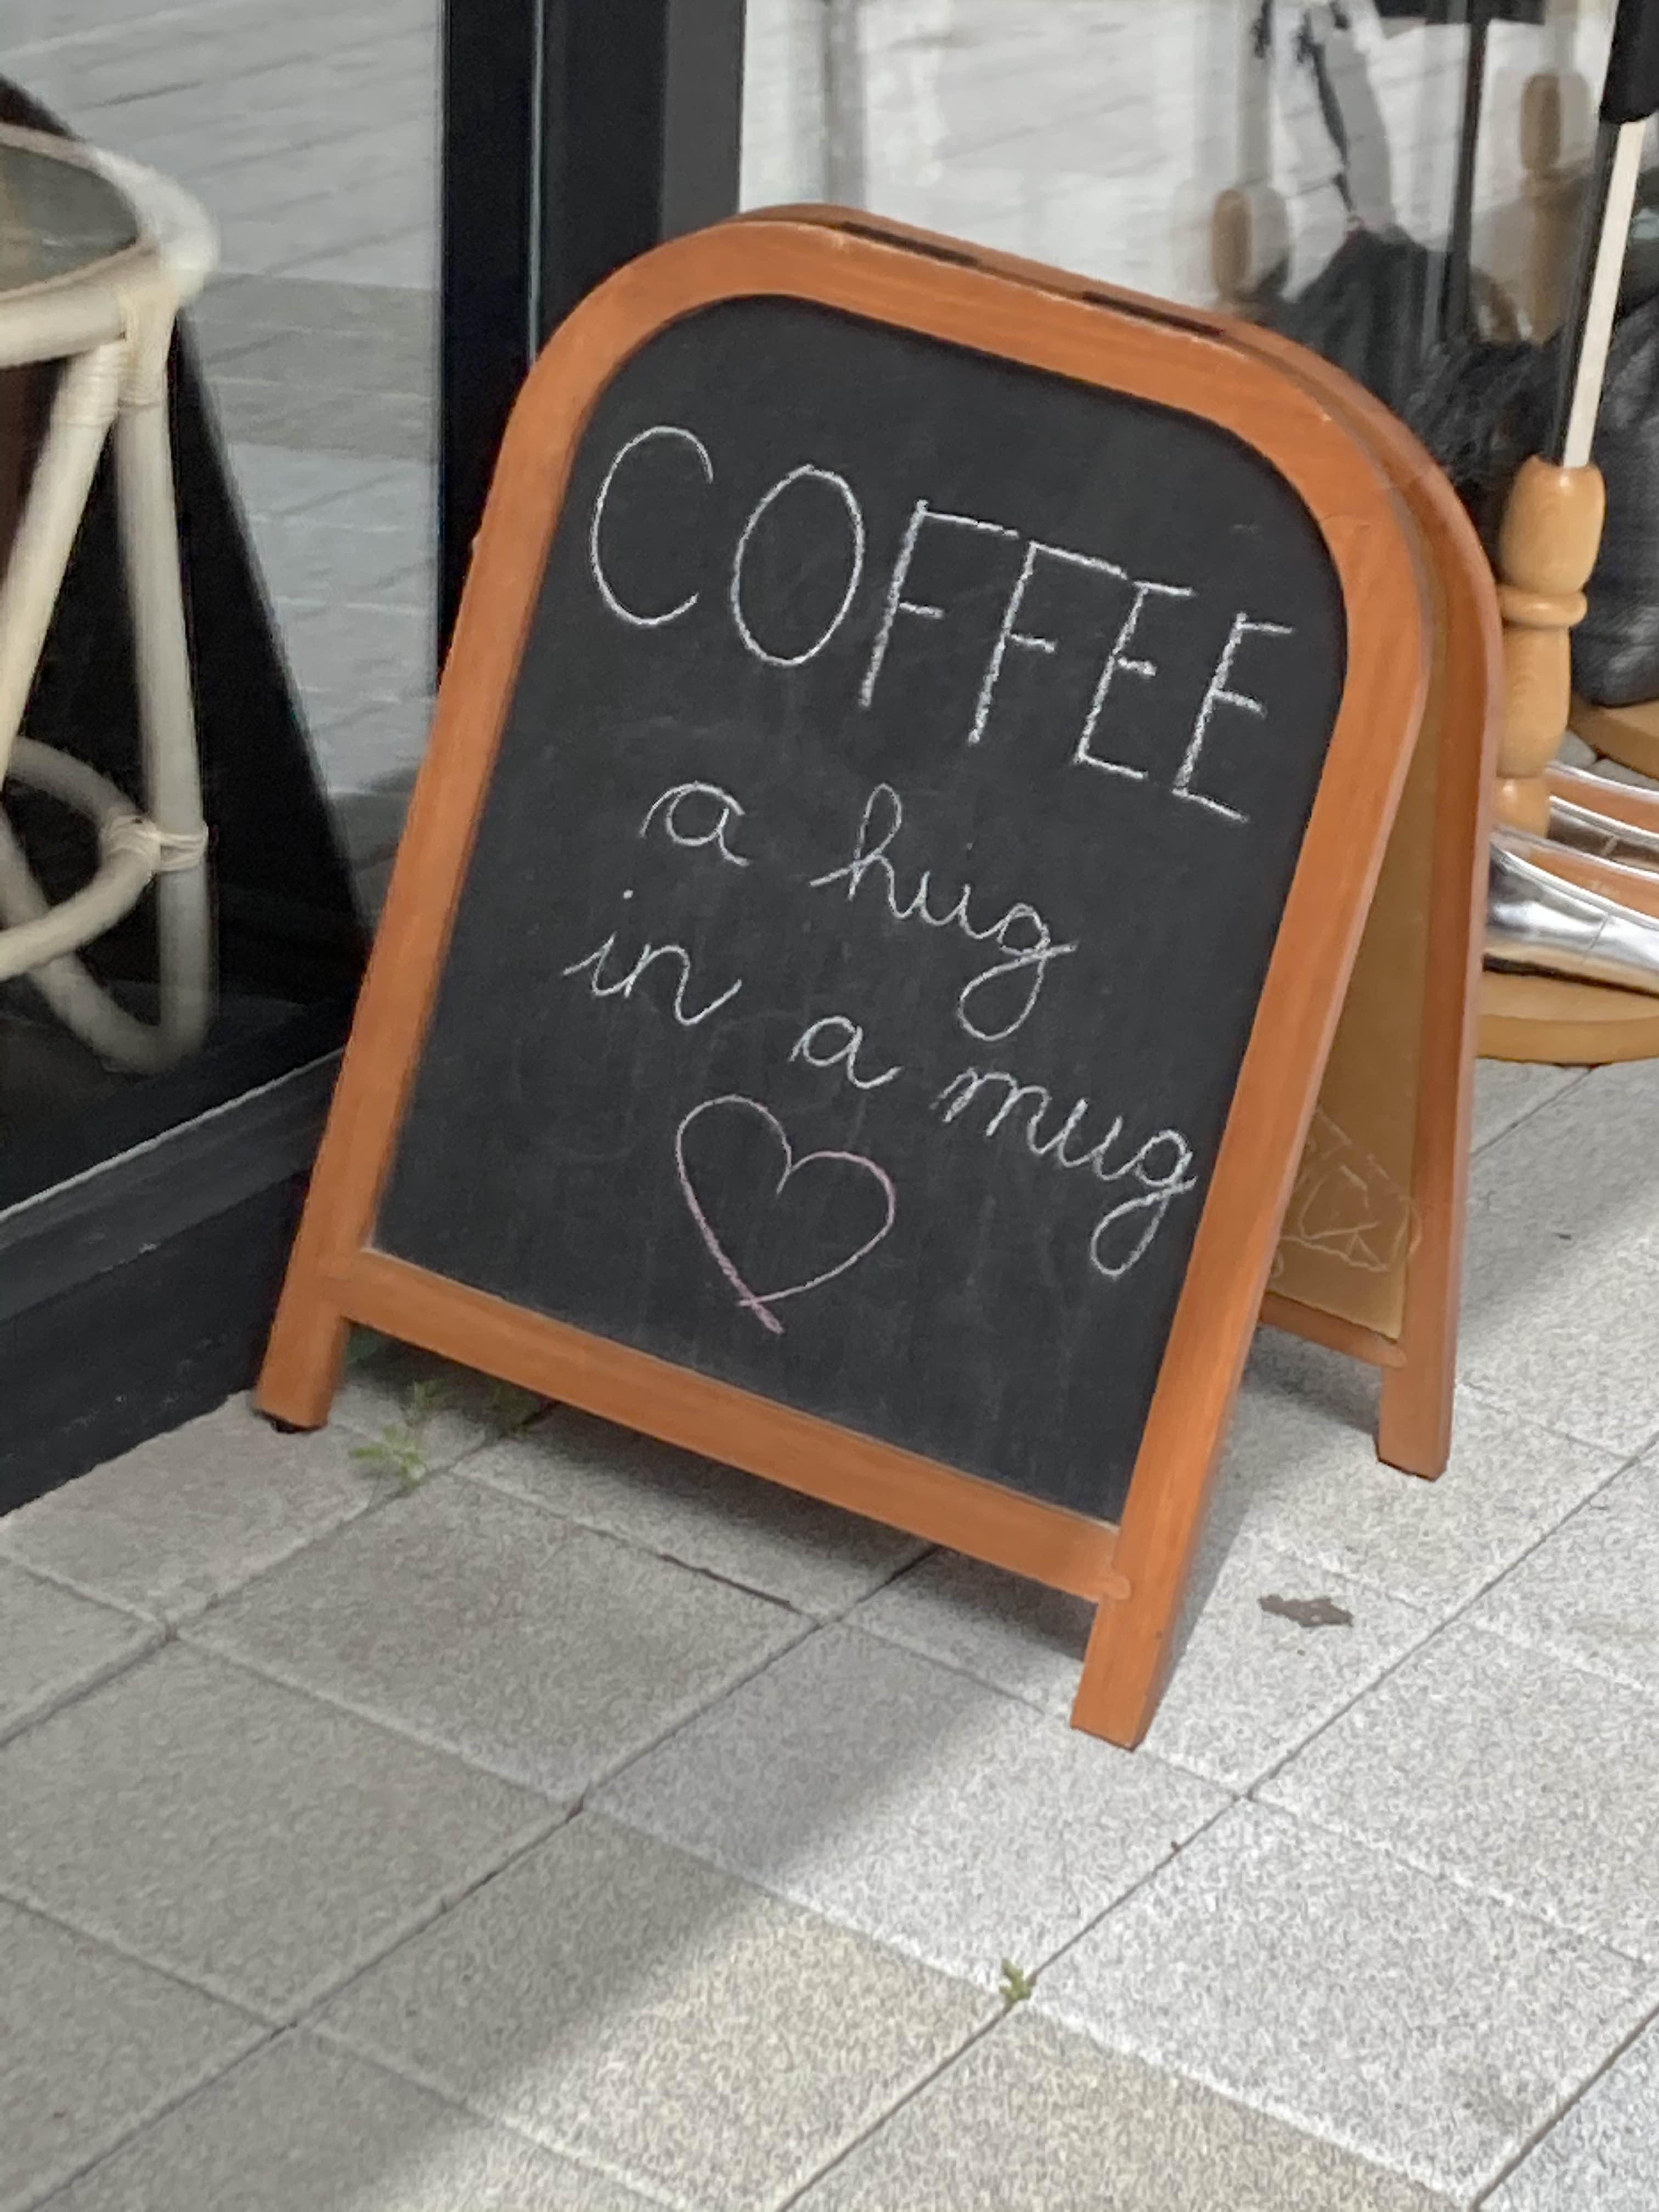 COFFEE
a hug
in a mug